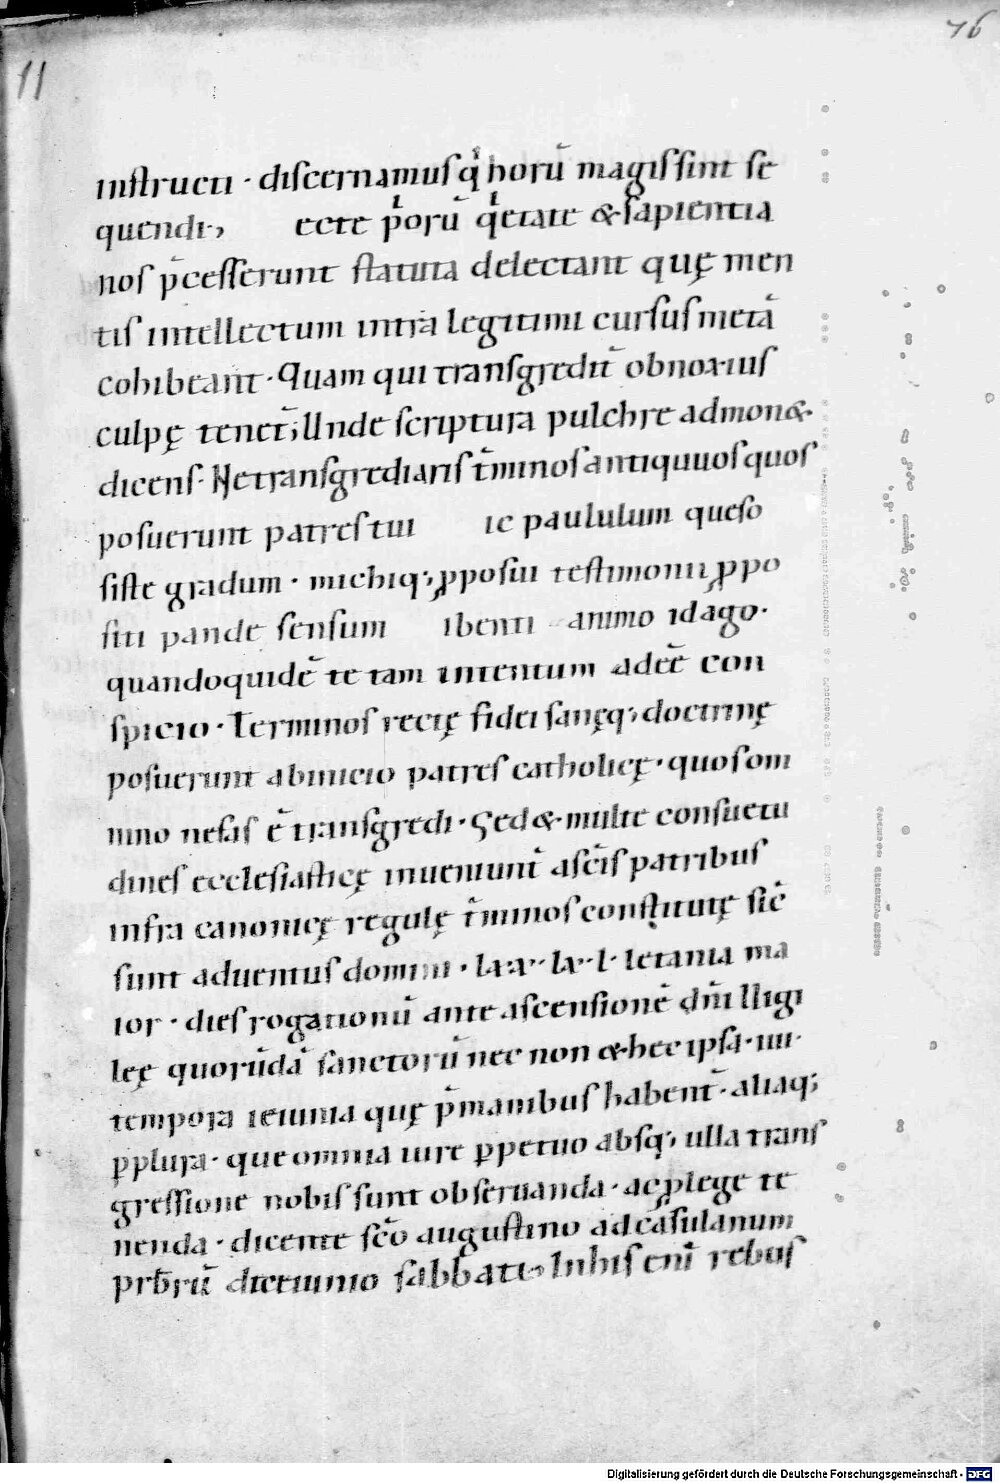 11
76
instructi · discernamus q horū magis sint se
quendi·, ecte p̄orū q̄ etate & sapientia
nos p̄cesserunt statuta delectant quę men
tis intellectum intra legitimi cursus metā
cohibeant · Quam qui transgredit̄ obnoxius
culpę tenet̄; Unde scriptura pulchre admon&·
dicens · Ne transgrediaris t̄minos antiquuos quos
posuerunt patres tui ic paululum queso
siste gradum · michiq; ꝓposui testimonii ꝓpo
siti pande sensum ibenti animo id ago·
quandoquidē te tam intentum adeē con
spicio · Terminos rectę fidei sanęq; doctrinę
posuerunt ab inicio patres catholicę · quos om
nino nefas ē transgredi · Sed & multe consuetu
dines ecclesiasticę inueniunt̄ a sc̄is patribus
infra canonicę regulę t̄minos constitutę sic̄
sunt aduentus domini · lxx· lx· l· letania ma
ior · dies rogationū ante ascensionē dn̄i Uigi
lię quorūdā sanctorū nec non & hec ipsa · iiii·
tempora ieiunia quę p̄manibus habent̄ · aliaq;
ꝑplura · que omnia iure ꝑpetuo absq; ulla trans
gressione nobis sunt obseruanda · ac ꝓ lege te
nenda · dicente sc̄o augustino ad cāsulanum
prb̄rū de ieiunio sabbati; In his enī rebus
Digitalisierung gefördert durch die Deutsche Forschungsgemeinschaft - DFG